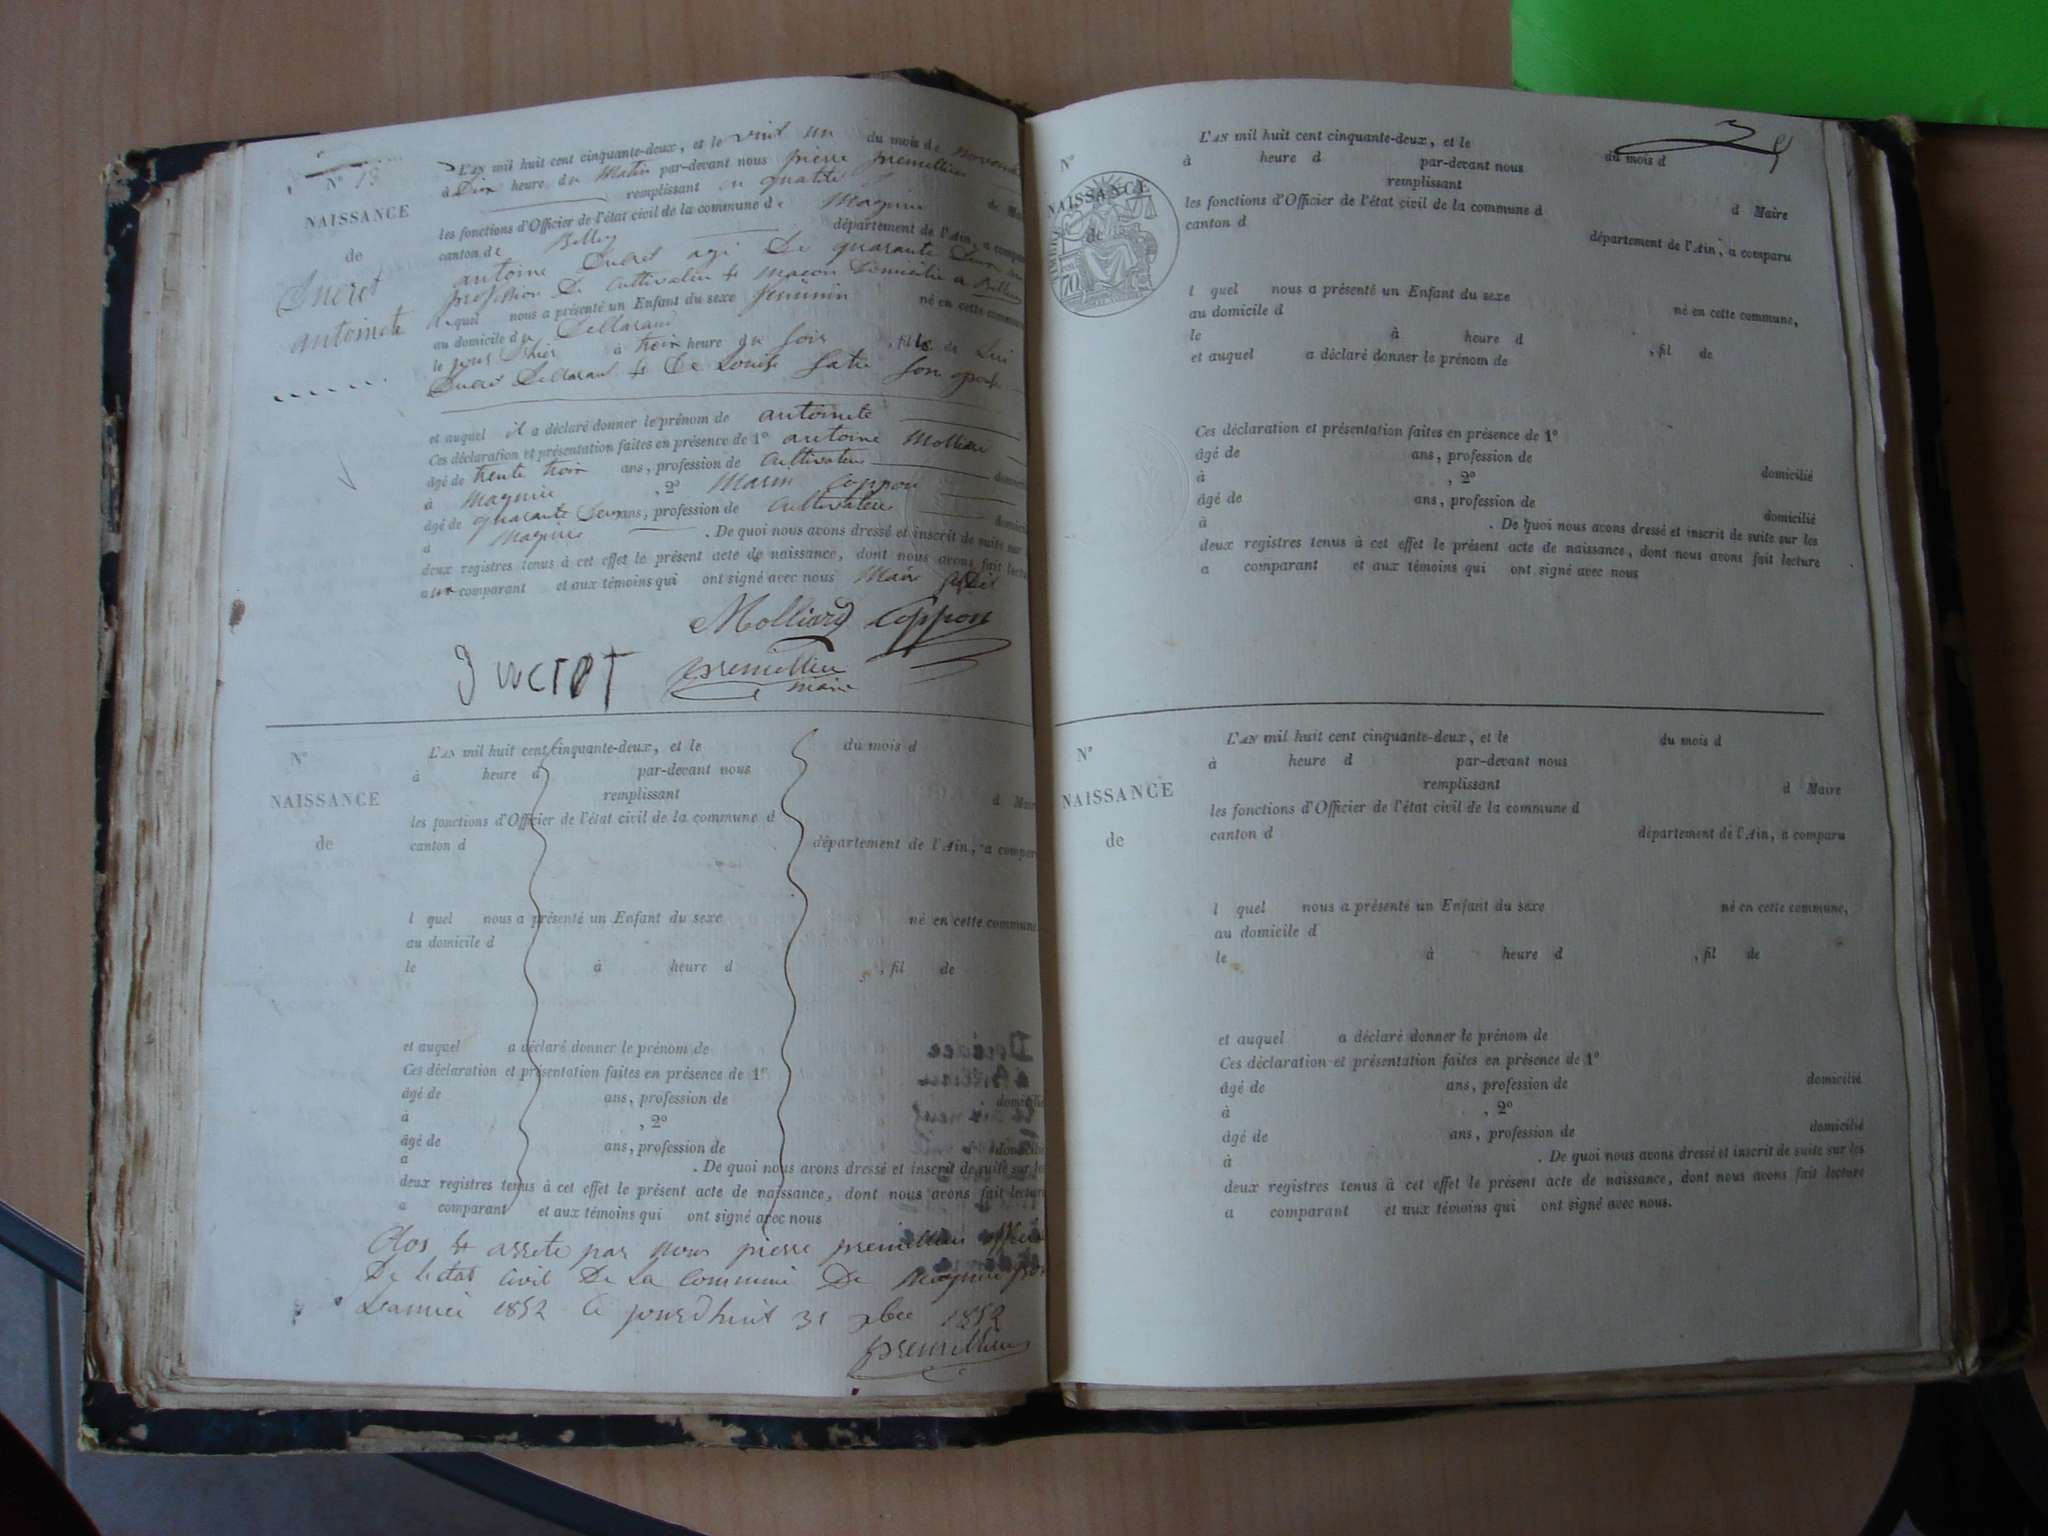 N° 13
NAISSANCE
de
Ducret
antoinete
L'AN mil huit cent cinquante-deux, et le vint un du mois de novembre
à Dix heure du Matin par-devant nous pierre premillieu
remplissant en qualité de Maire
les fonctions d'Officier de l'état civil de la commune de Magnieu
canton de Belley département de l'Ain, a comparu
antoine Ducret agé De quarante Deux ans
profession De Cultivateur & maçon Domicilié a Billieu
lequel nous a présenté un Enfant du sexe feminin né en cette commune
au domicile du Declarant
le jour D'hier à trois heure du soir, fille de Lui
Ducret Declarant & De Louise son epouse
et auquel il a déclaré donner le prénom de antoinete
Ces déclaration et présentation faites en présence de 1° antoine Molliard
âgé de trente trois ans, profession de Cultivateur domicilié
à Magnieu, 2° Marin Coppon
âgé de quarante Deux ans, profession de Cultivateur domicilié
à Magnieu. De quoi nous avons dressé et inscrit de suite sur les
deux registres tenus à cet effet le présent acte de naissance, dont nous avons fait lecture
au comparant et aux témoins qui ont signé avec nous Maire
Molliard Coppon
Ducret premillieu
maire
N°
NAISSANCE
de
L'AN mil huit cent cinquante-deux, et le du mois d
à heure d par-devant nous
remplissant d Maire
les fonctions d'Officier de l'état civil de la commune d
canton d département de l'Ain, a comparu
l quel nous a présenté un Enfant du sexe né en cette commune,
au domicile d
le à heure d , fil de
et auquel a déclaré donner le prénom de
Ces déclaration et présentation faites en présence de 1°
âgé de ans, profession de domicilié
à , 2°
âgé de ans, profession de domicilié
à . De quoi nous avons dressé et inscrit de suite sur les
deux registres tenus à cet effet le présent acte de naissance, dont nous avons fait lecture
a comparant et aux témoins qui ont signé avec nous
Clos & arrete par nous pierre premillieu officier
De letat Civil De La Commune De Magnieu pour
Lannee 1852 Ce jourdhuit 31 xbre 1852
premillieu
N°
NAISSANCE
de
L'AN mil huit cent cinquante-deux, et le du mois d
à heure d par-devant nous
remplissant
les fonctions d'Officier de l'état civil de la commune d d Maire
canton d département de l'Ain, a comparu
l quel nous a présenté un Enfant du sexe né en cette commune,
au domicile d
le à heure d , fil de
et auquel a déclaré donner le prénom de
Ces déclaration et présentation faites en présence de 1°
âgé de ans, profession de domicilié
à , 2°
âgé de ans, profession de domicilié
à . De quoi nous avons dressé et inscrit de suite sur les
deux registres tenus à cet effet le présent acte de naissance, dont nous avons fait lecture
a comparant et aux témoins qui ont signé avec nous
N°
NAISSANCE
de
L'AN mil huit cent cinquante-deux, et le du mois d
à heure d par-devant nous
remplissant d Maire
les fonctions d'Officier de l'état civil de la commune d
canton d département de l'Ain, a comparu
l quel nous a présenté un Enfant du sexe né en cette commune,
au domicile d
le à heure d , fil de
et auquel a déclaré donner le prénom de
Ces déclaration et présentation faites en présence de 1°
âgé de ans, profession de domicilié
à , 2°
âgé de ans, profession de domicilié
à . De quoi nous avons dressé et inscrit de suite sur les
deux registres tenus à cet effet le présent acte de naissance, dont nous avons fait lecture
a comparant et aux témoins qui ont signé avec nous.